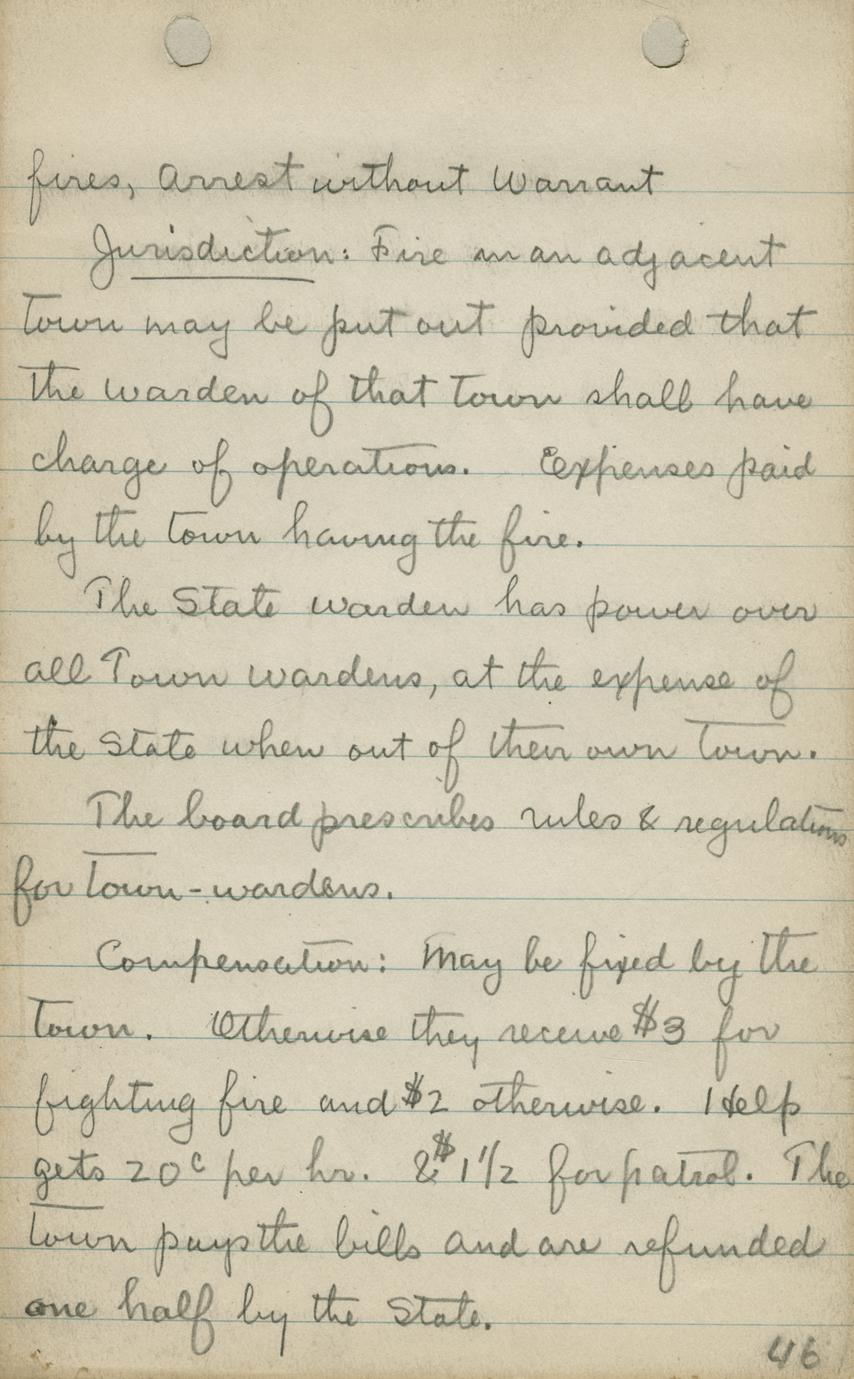 fires, Arrest without Warrant
Jurisdiction: Fire in an adjacent
town may be put out provided that
the warden of that town shall have
charge of operations. Expenses paid
by the town having the fire.
The State warden has power over
all Town wardens, at the expense of
the State when out of their own town.
The board prescribes rules & regulations
for town-wardens.
Compensation: May be fixed by the
town. Otherwise they receive $3 for
fighting fire and $2 otherwise. Help
gets 20c per hr. & $1 1/2 for patrol. The
town pays the bills and are refunded
one half by the State.
46